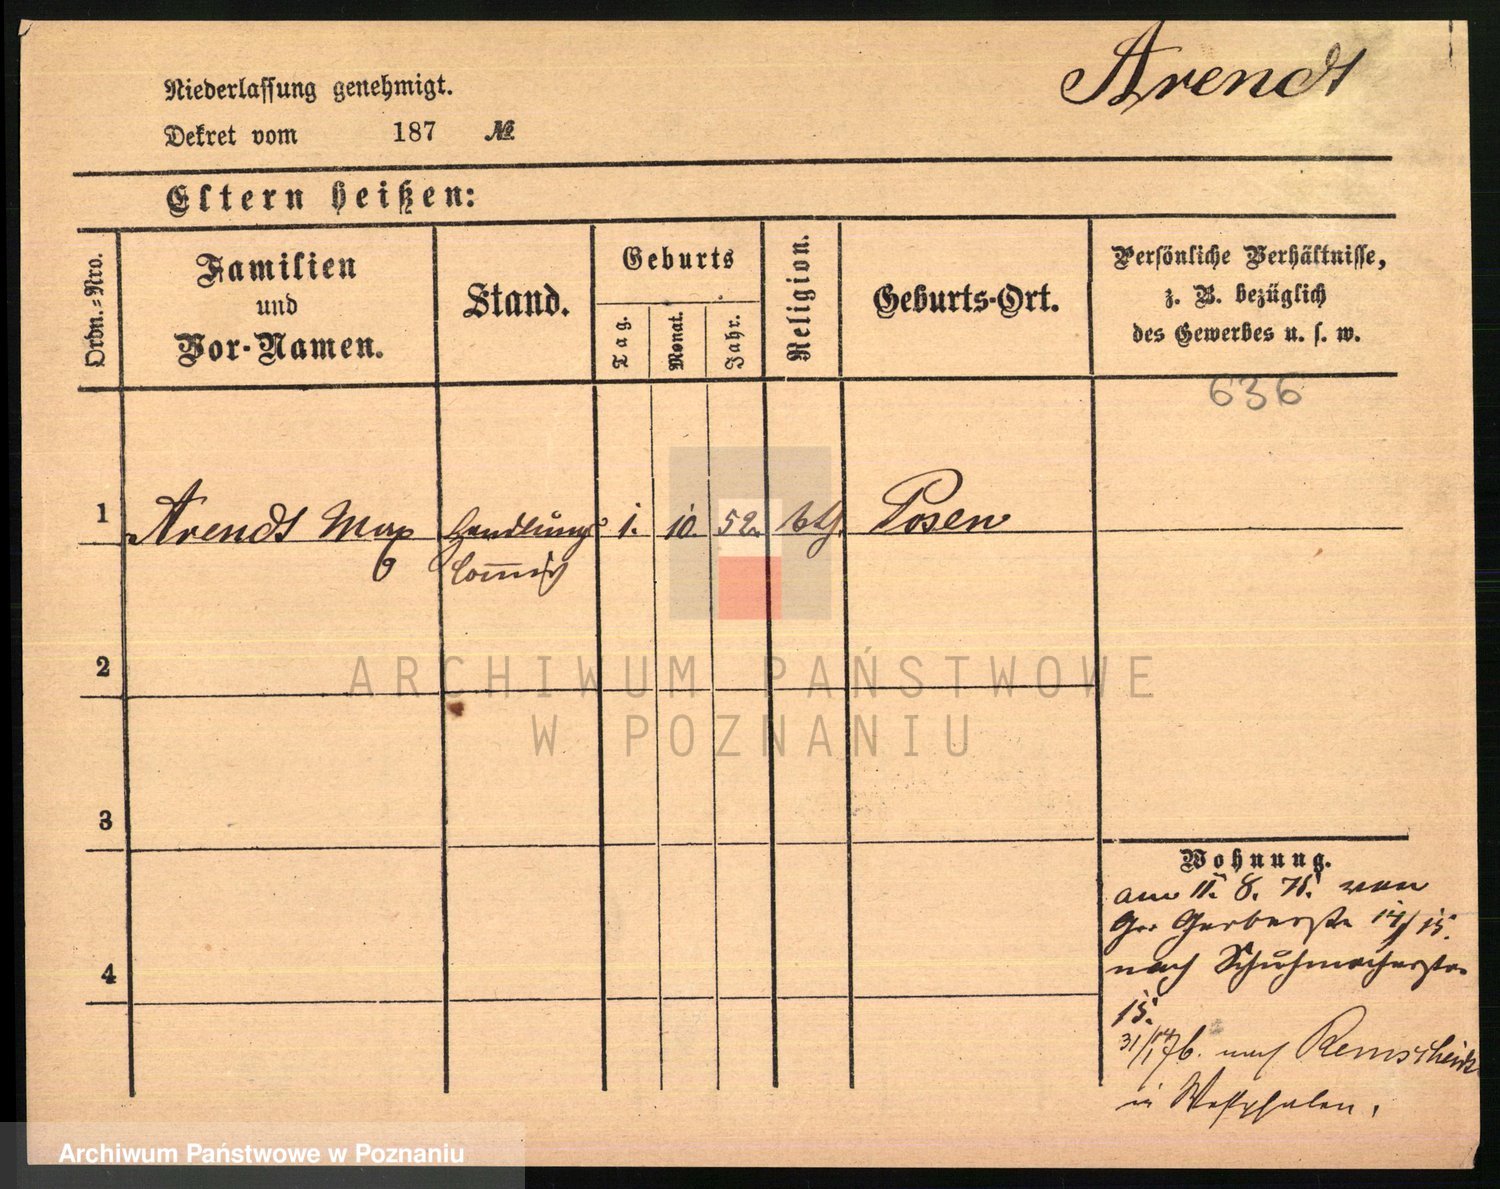 Arendt
Niederlassung genehmigt.
Dekret vom 187 №
Eltern heißen:
Ordn.=Nro.
Familien
und
Vor-Namen.
Stand.
Geburts
Tag.
Monat.
Jahr.
Religion.
Geburts-Ort.
Persönliche Verhältnisse,
z. B. bezüglich
des Gewerbes u. s. w.
636
1 Arendt Max Handlungs 1. 10. 52. Posen
Commis
2
3
4
Wohnung.
am 11. 8. von
Gr. Gerberstr. 14/15.
nach Schuhmacherstr.
15.
76. nach Remscheid
in Westphalen.
ARCHIWUM PAŃSTWOWE
W POZNANIU
Archiwum Państwowe w Poznaniu